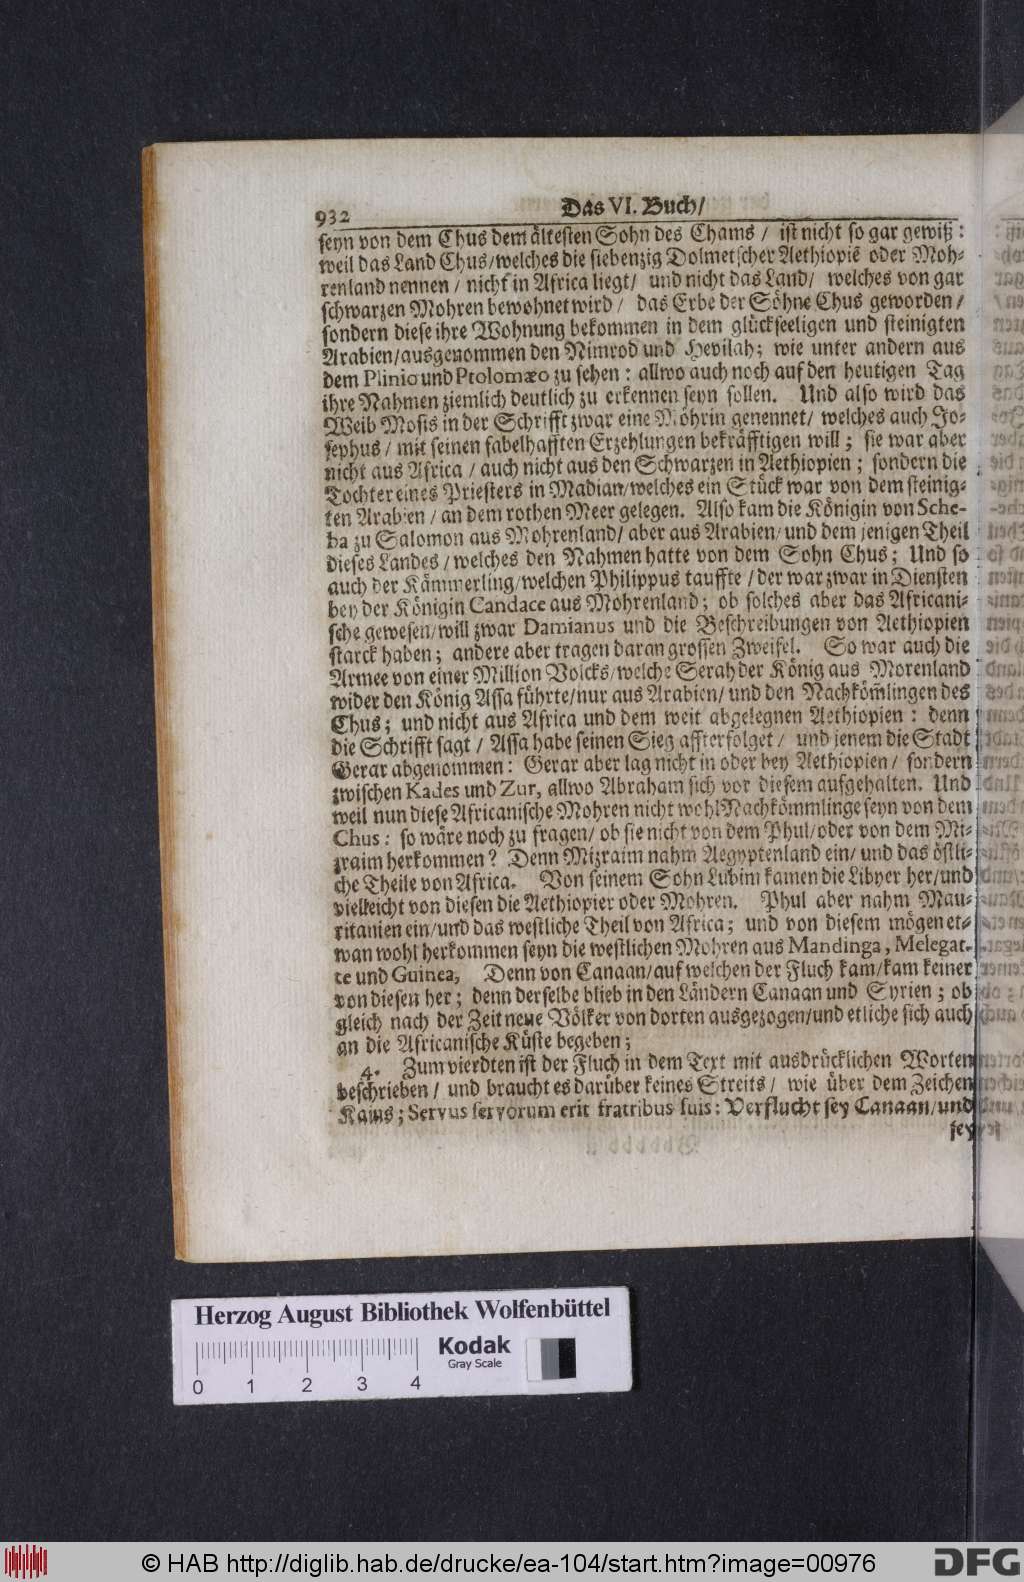 932
Das VI. Buch/
seyn von dem Chus dem ältesten Sohn des Chams / ist nicht so gar gewiß:
weil das Land Chus/welches die siebenzig Dolmetscher Aethiopiē oder Moh-
renland nennen / nicht in Africa liegt/ und nicht das Land/ welches von gar
schwarzen Mohren bewohnet wird / das Erbe der Söhne Chus geworden /
sondern diese ihre Wohnung bekommen in dem glückseeligen und steinigten
Arabien/ausgenommen den Nimrod und Hevilah; wie unter andern aus
dem Plinio und Ptolomæo zu sehen: allwo auch noch auf den heutigen Tag
ihre Nahmen ziemlich deutlich zu erkennen seyn sollen. Und also wird das
Weib Mosis in der Schrifft zwar eine Möhrin genennet/ welches auch Jo-
sephus / mit seinen fabelhafften Erzehlungen bekräfftigen will; sie war aber
nicht aus Africa / auch nicht aus den Schwarzen in Aethiopien; sondern die
Tochter eines Priesters in Madian/welches ein Stück war von dem steinig-
ten Arabien / an dem rothen Meer gelegen. Also kam die Königin von Sche-
ba zu Salomon aus Mohrenland/ aber aus Arabien/ und dem jenigen Theil
dieses Landes / welches den Nahmen hatte von dem Sohn Chus; Und so
auch der Kämmerling/welchen Philippus tauffte / der war zwar in Diensten
bey der Königin Candace aus Mohrenland; ob solches aber das Africani-
sche gewesen/will zwar Damianus und die Beschreibungen von Aethiopien
starck haben; andere aber tragen daran grossen Zweifel. So war auch die
Armee von einer Million Volcks/welche Serah der König aus Morenland
wider den König Assa führte/nur aus Arabien/ und den Nachköm̄lingen des
Chus; und nicht aus Africa und dem weit abgelegnen Aethiopien: denn
die Schrifft sagt / Assa habe seinen Sieg affterfolget / und jenem die Stadt
Gerar abgenommen: Gerar aber lag nicht in oder bey Aethiopien/ sondern
zwischen Kades und Zur, allwo Abraham sich vor diesem aufgehalten. Und
weil nun diese Africanische Mohren nicht wohl Nachkömmlinge seyn von dem
Chus: so wäre noch zu fragen/ ob sie nicht von dem Phul/oder von dem Mi-
zraim herkommen? Denn Mizraim nahm Aegyptenland ein/ und das östli-
che Theile von Africa. Von seinem Sohn Lubim kamen die Libyer her/und
vielleicht von diesen die Aethiopier oder Mohren. Phul aber nahm Mau-
ritanien ein/und das westliche Theil von Africa; und von diesem mögen et-
wan wohl herkommen seyn die westlichen Mohren aus Mandinga, Melegat-
te und Guinea, Denn von Canaan/auf welchen der Fluch kam/kam keiner
von diesen her; denn derselbe blieb in den Ländern Canaan und Syrien; ob
gleich nach der Zeit neue Völker von dorten ausgezogen/und etliche sich auch
an die Africanische Küste begeben;
4. Zum vierdten ist der Fluch in dem Text mit ausdrücklichen Worten
beschrieben / und braucht es darüber keines Streits / wie über dem Zeichen
Kains; Servus servorum erit fratribus suis: Verflucht sey Canaan/und
sey
Herzog August Bibliothek Wolfenbüttel
Kodak
Gray Scale
0 1 2 3 4
© HAB http://diglib.hab.de/drucke/ea-104/start.htm?image=00976
DFG